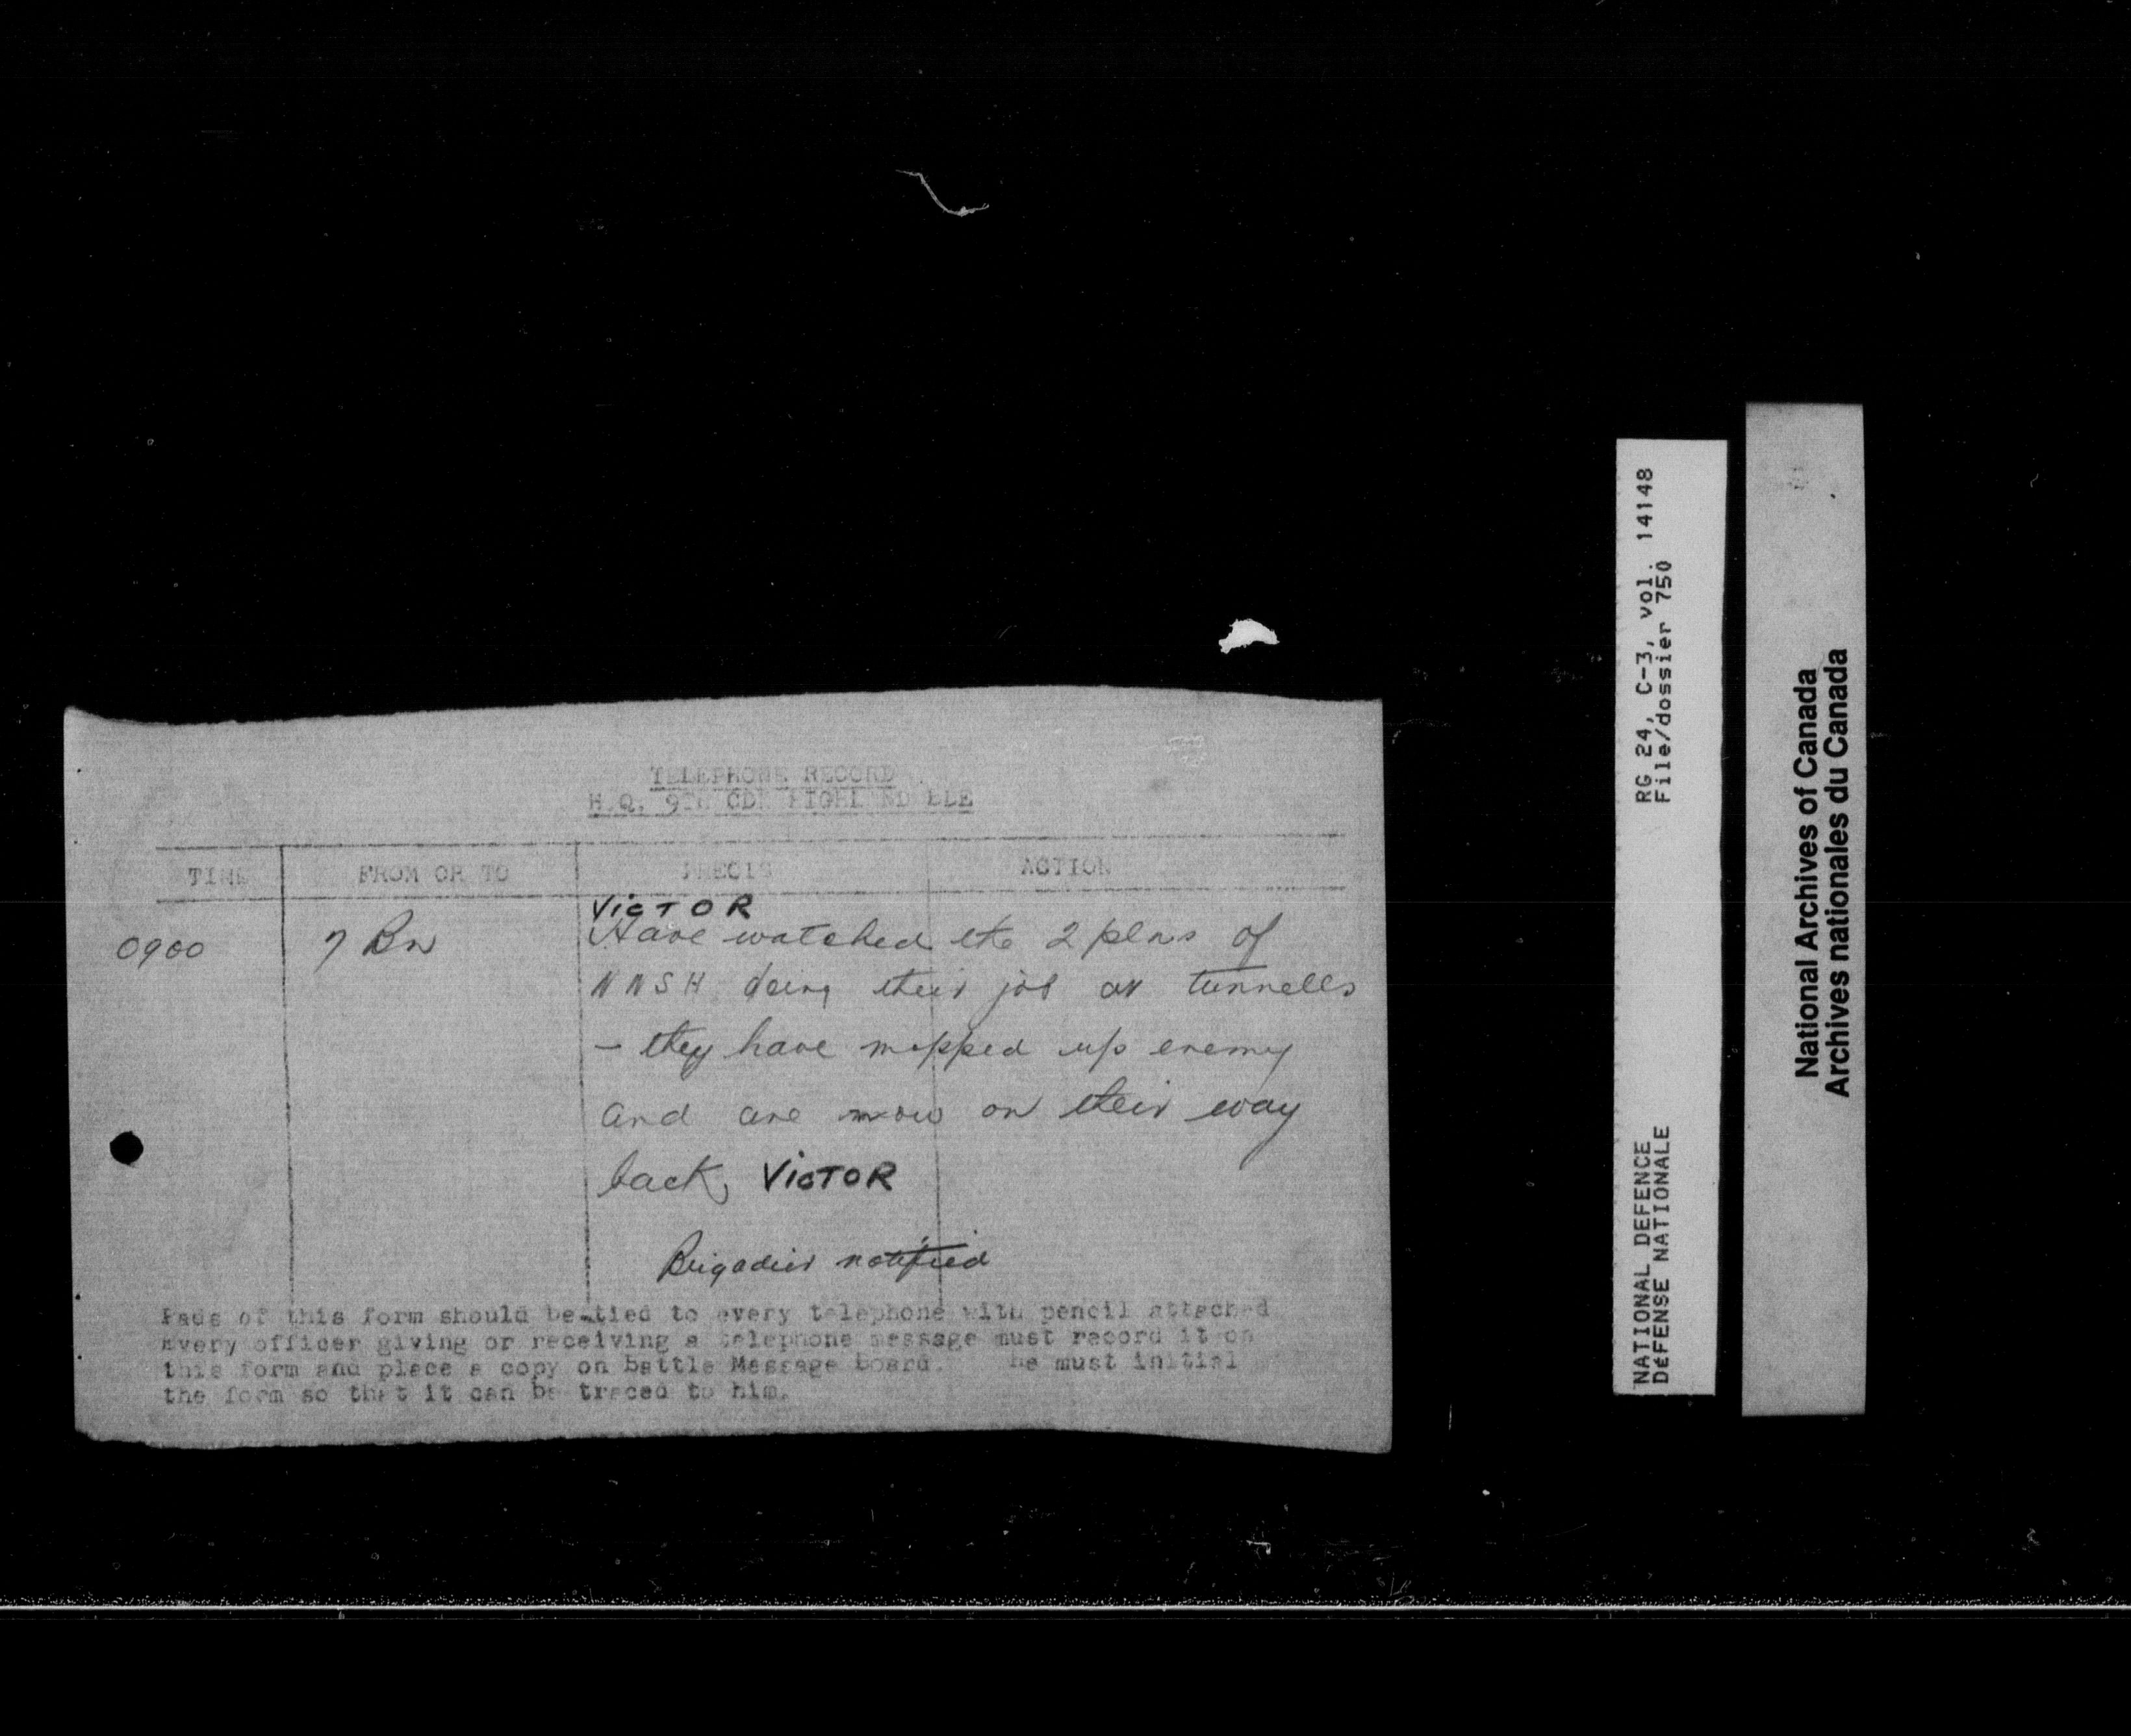 TELEPHONE RECORD
H.Q. 9TH CDN HIGHLAND BDE
TIME FROM OR TO PRECIS ACTION
VICTOR
0900 7 Bn Have watched the 2 plns of
NNSH doing their job at tunnells
- they have mopped up enemy
and are now on their way
back, VICTOR
Brigadier notified
Pads of this form should be tied to every telephone with pencil attached
Every officer giving or receiving a telephone message must record it on
this form and place a copy on Battle Message Board. He must initial
the form so that it can be traced to him.
RG 24, C-3, vol. 14148
File/dossier 750
NATIONAL DEFENCE
DÉFENSE NATIONALE
National Archives of Canada
Archives nationales du Canada